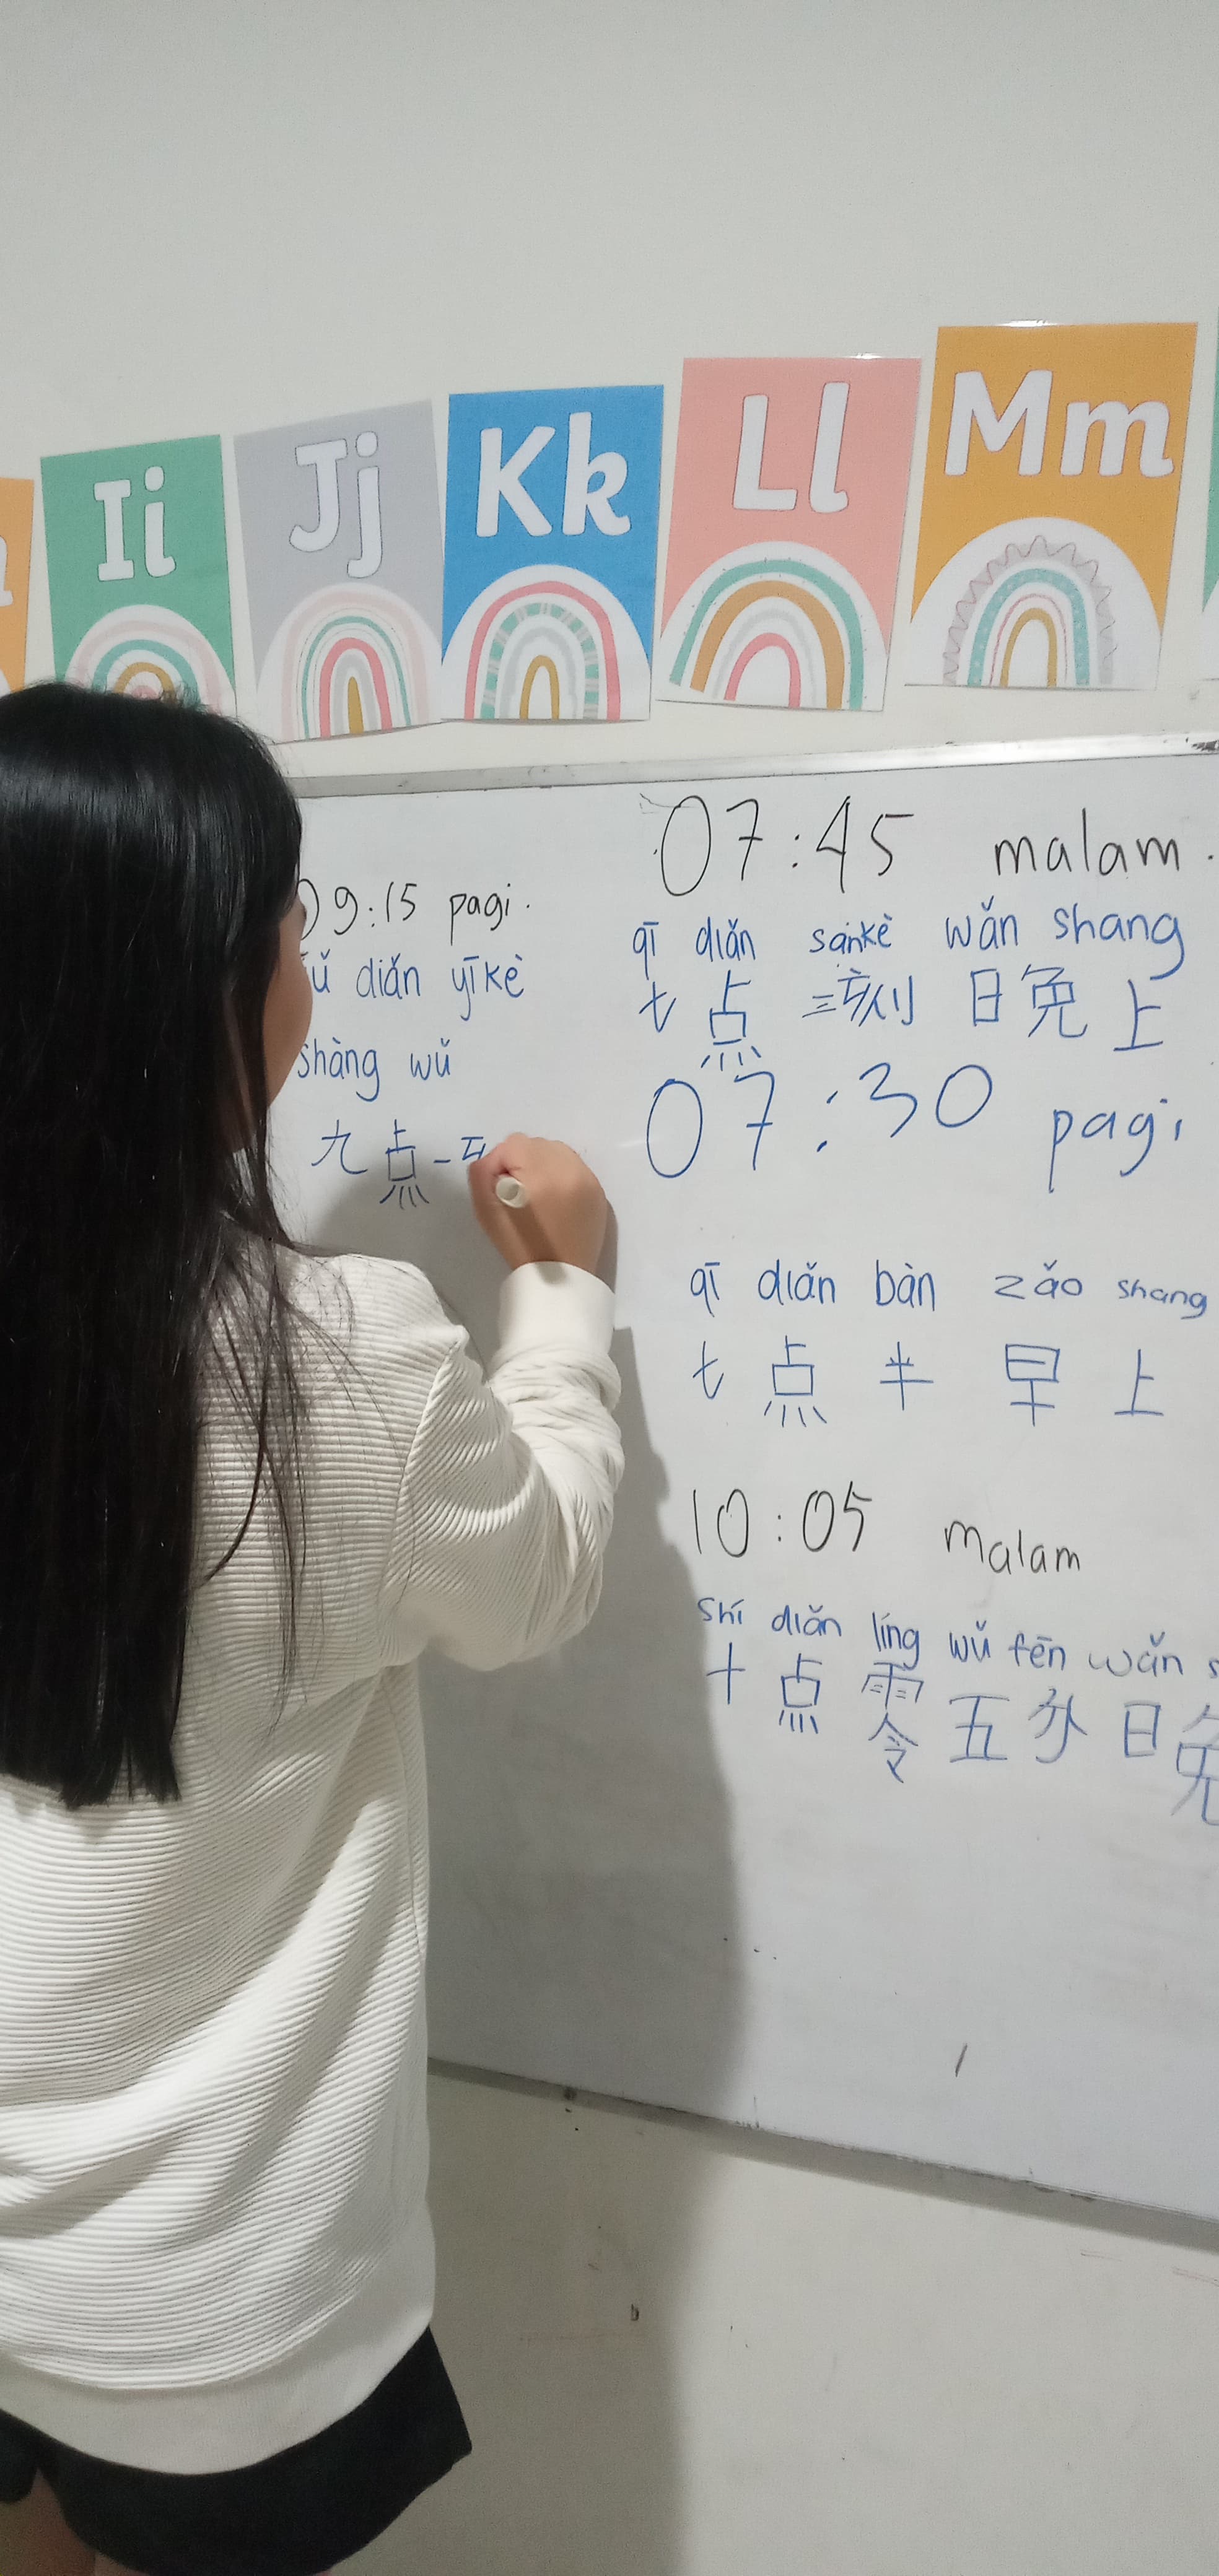 Ii Jj Kk Ll Mm
09:15 pagi.
diǎn yīkè
shàng wǔ
九点一
07:45 malam.
qī diǎn sānkè wǎn shang
七点三刻日免上
07:30 pagi
qī diǎn bàn zǎo shang
七点半早上
10:05 malam
shí diǎn líng wǔ fēn wǎn
十点零五分日免